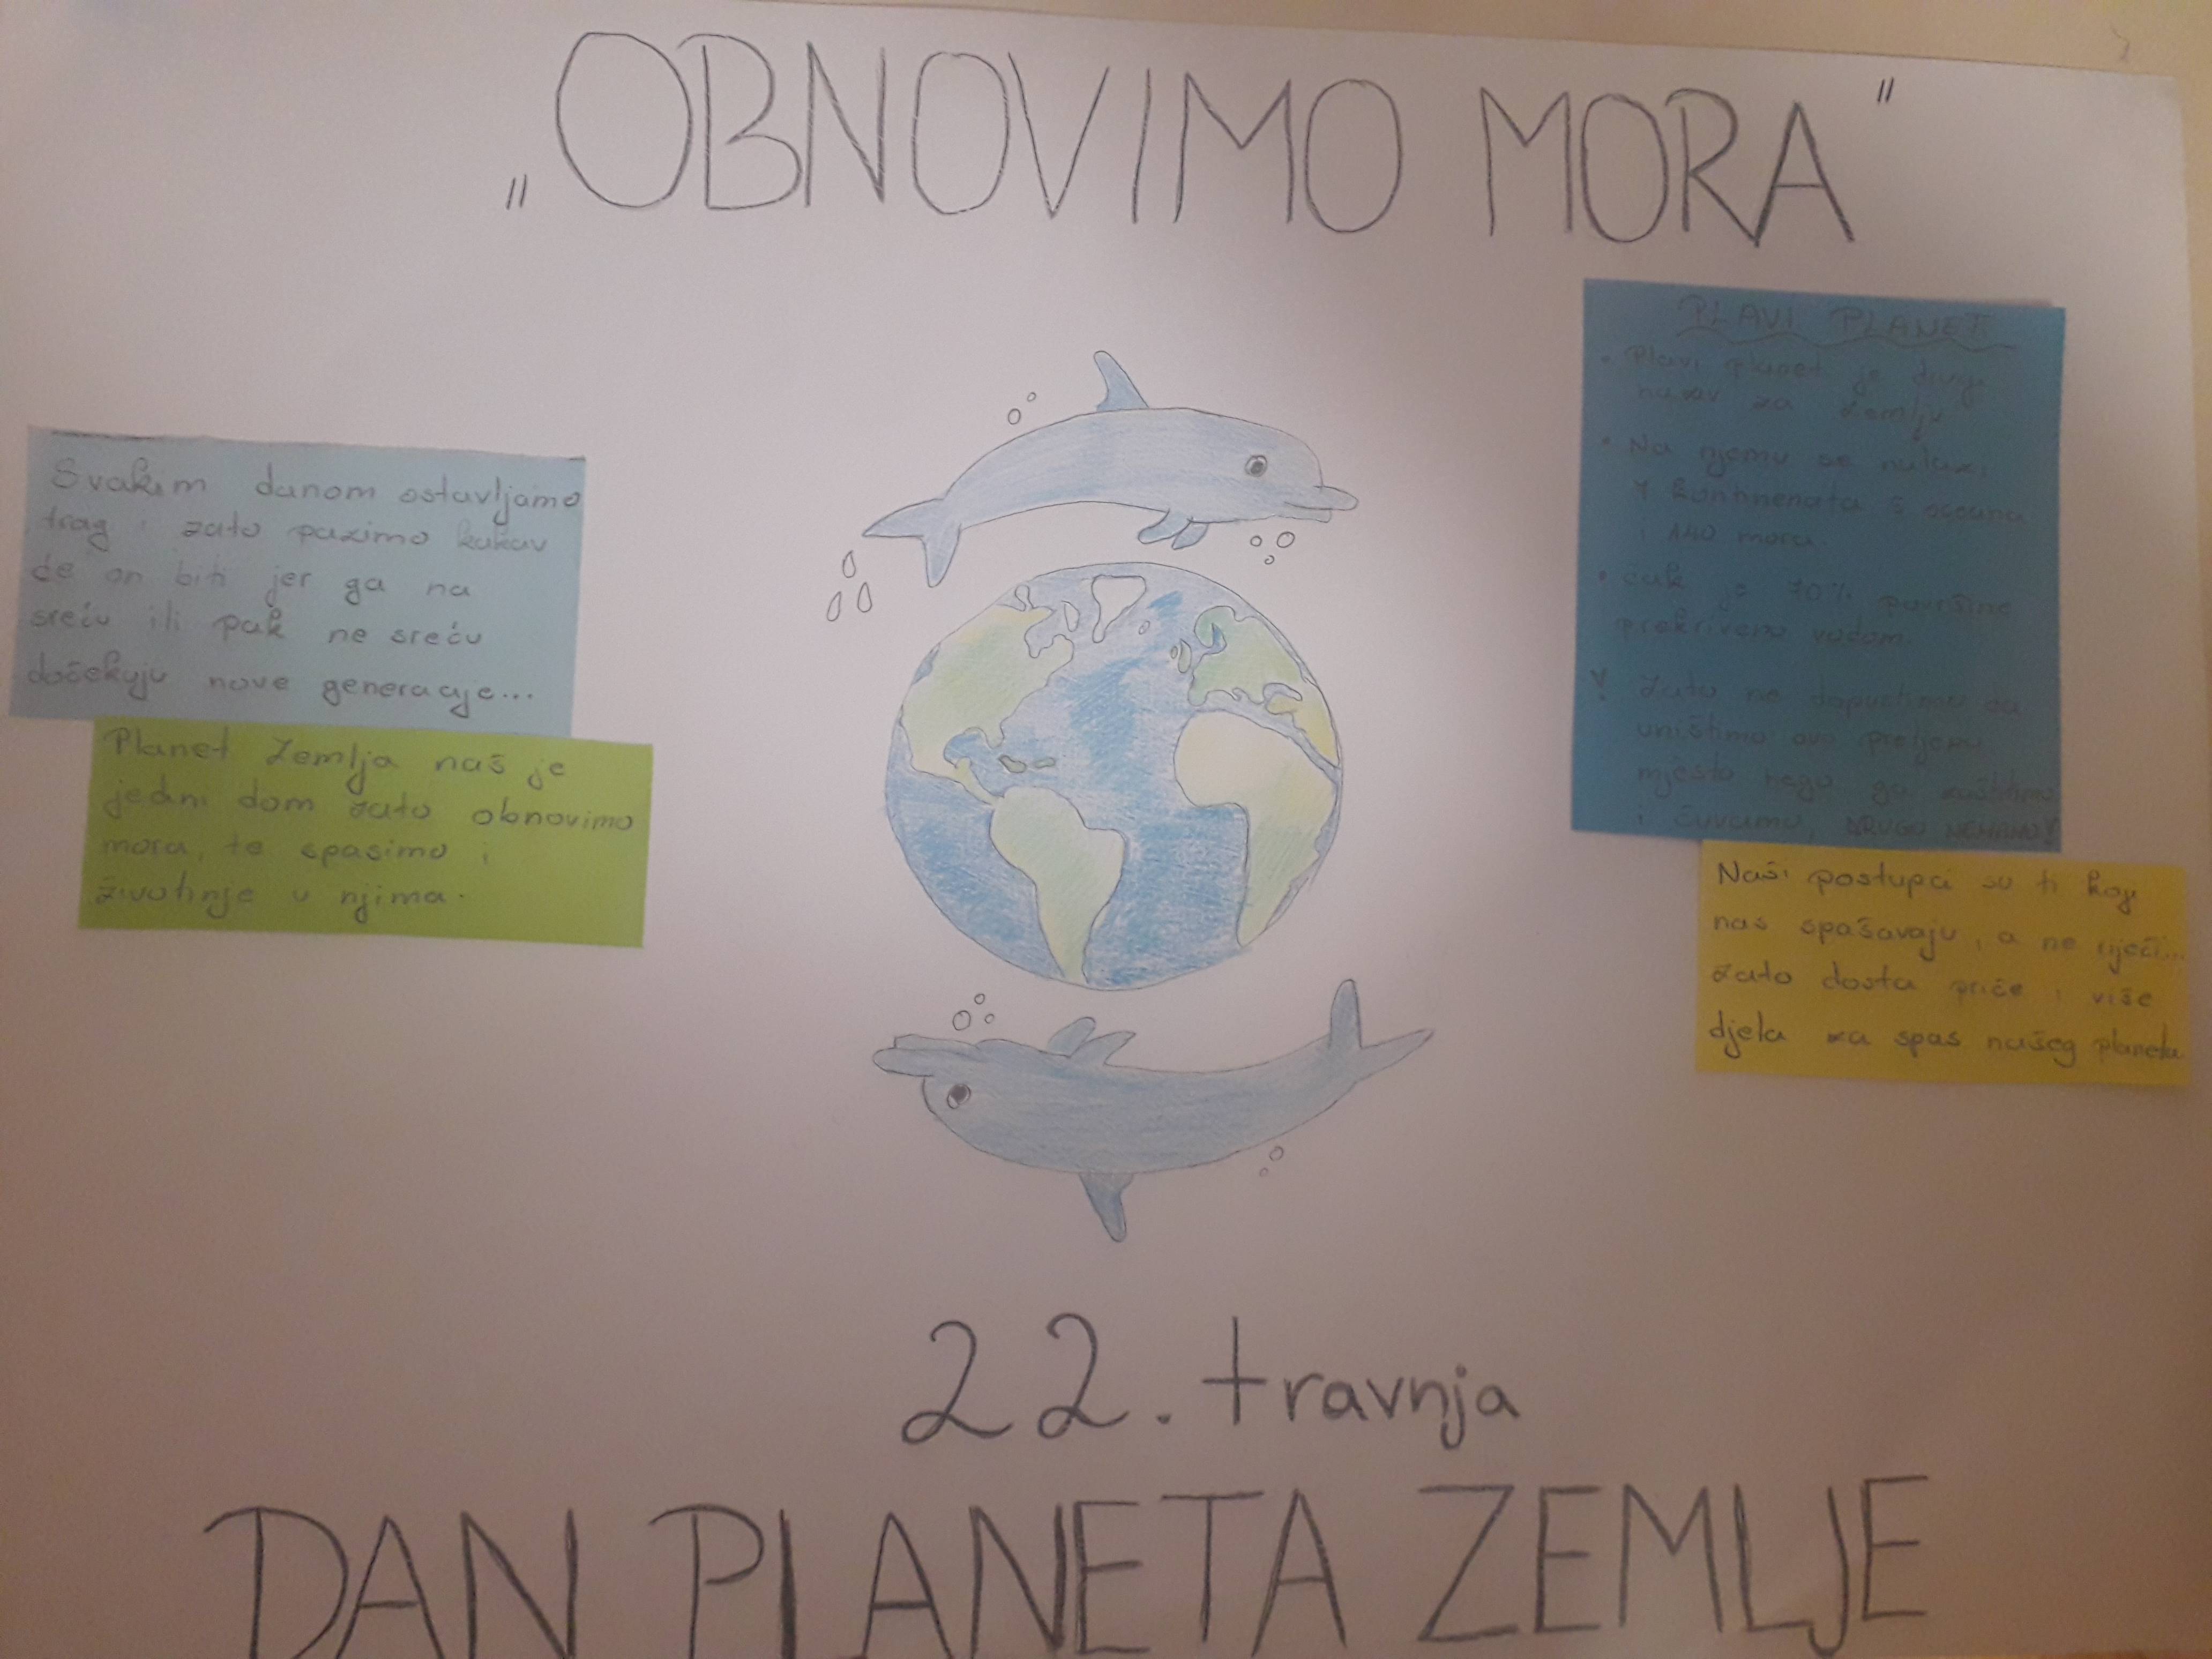 „OBNOVIMO MORA"
Svakim danom ostavljamo
trag i zato pazimo kakav
će on biti jer ga na
sreću ili pak ne sreću
dočekuju nove generacije...
Planet Zemlja naš je
jedini dom zato obnovimo
mora, te spasimo i
životinje u njima.
PLAVI PLANET
• Plavi planet je drugi
naziv za Zemlju
• Na njemu se nalazi
7 kontinenata 5 oceana
i mora.
• čak je 70% površine
prekriveno vodom.
! Zato ne dopustimo da
uništimo ovo prelijepo
mjesto nego ga zaštitimo
i čuvamo, DRUGO NEMAMO!
Naši postupci su ti koji
nas spašavaju, a ne riječi...
zato dosta priče i više
djela za spas našeg planeta
22. travnja
DAN PLANETA ZEMLJE